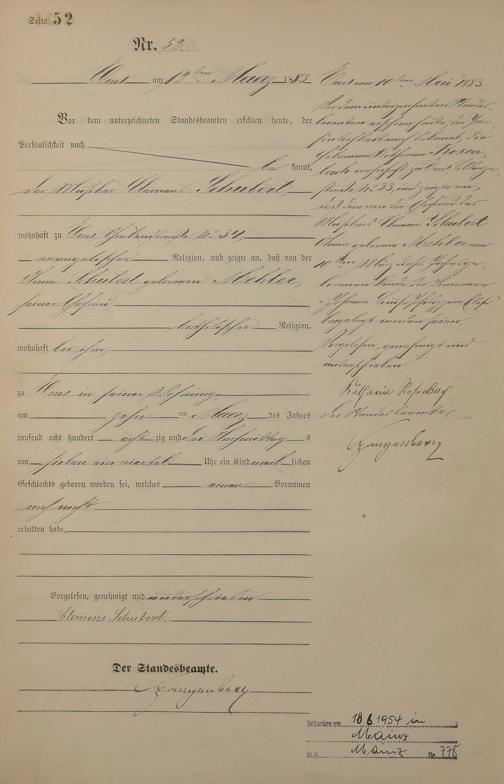 Seite 52
Nr. 52.
Ems am 12ten Maerz 1883
Vor dem unterzeichneten Standesbeamten erschien heute, der
Persönlichkeit nach
be kannt,
der Musiker Clemens Schubert,
wohnhaft zu Ems, No 54,
evangelischer Religion, und zeigte an, daß von der
Anna Schubert geborenen Mehler,
seiner Ehefrau
katholischer Religion,
wohnhaft bei ihm,
zu Ems in seiner Wohnung,
am zehn ten Maerz des Jahres
tausend acht hundert achtzig und drei Nachmittag s
um sieben ein viertel Uhr ein Kind lichen
Geschlechts geboren worden sei, welches einen Vornamen
noch nicht
erhalten habe.
Vorgelesen, genehmigt und unterschrieben
Clemens Schubert.
Der Standesbeamte.
Ems am 10ten Mai 1883.
Vor dem unterzeichneten Standes
beamten erschien heute, der Per
sönlichkeit nach bekannt, die
Hebamme Katharina Rosen
berg wohnhaft zu Ems
No 33, und zeigte an,
daß dem von der Ehefrau des
Musikers Clemens Schubert
Anna geborenen Mehler am
10ten dieses Jahres ge
borenen Kinde die Vornamen
beigelegt worden seien.
Vorgelesen, genehmigt und
unterschrieben
Katharina Rosenberg
der Standesbeamte
Gestorben am 18.6.1954 in
Mainz
St.A. Mainz Nr. 778